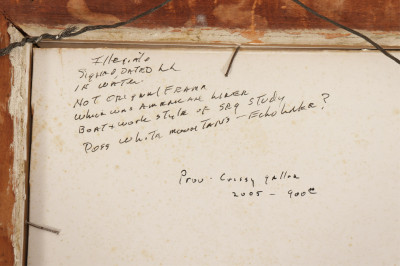 Illegible
Signed, Dated LL
in water.
Not original Frame
which was American Liner
Boat & work style of Seg study
Poss White Mountains - Echo Lake?
Prov. Crissy gallery
2005 - 900